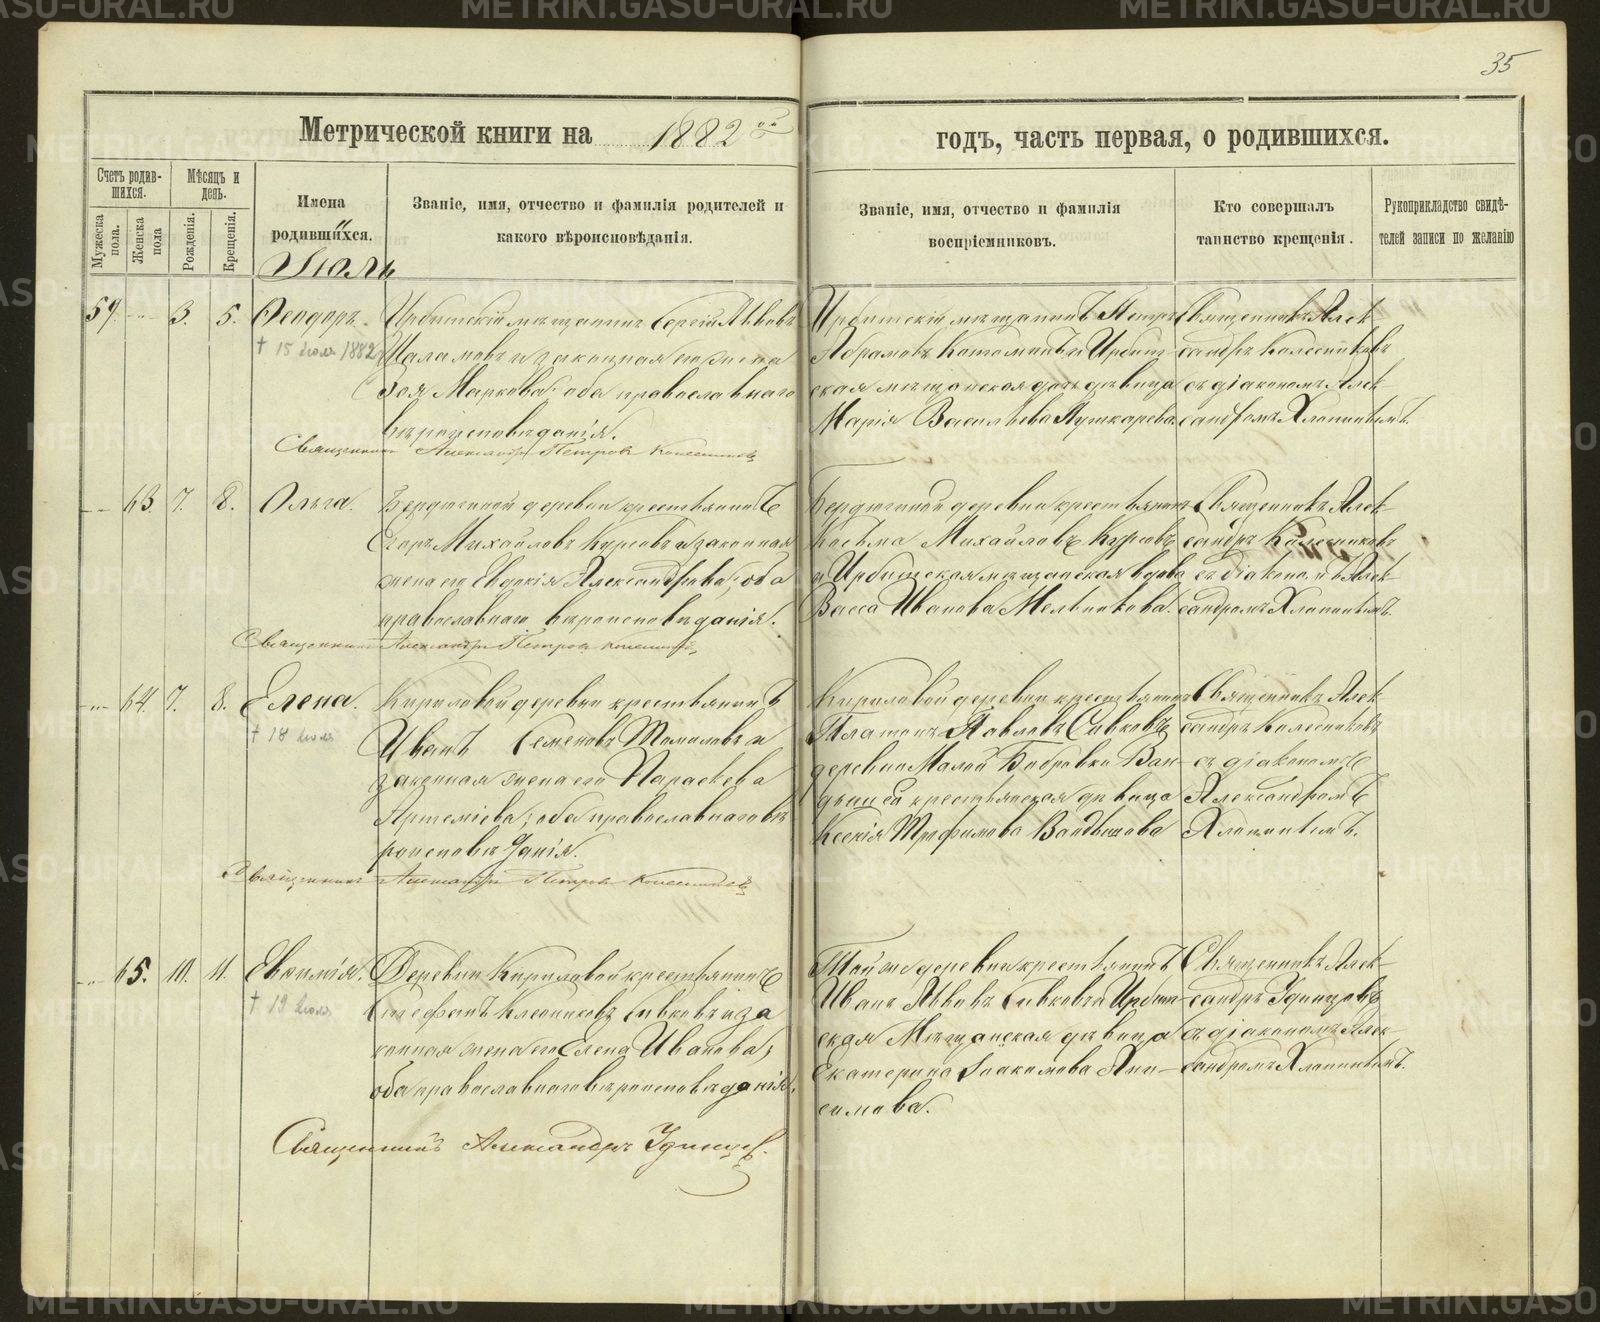 35
Метрической книги на 1882 ой годъ, часть первая, о родившихся.
Счетъ родив-
шихся.
Мужеска пола.
Женска пола
Мѣсяцъ и день.
Рожденія.
Крещенія.
Имена
родившихся.
Званіе, имя, отчество и фамилія родителей и
какого вѣроисповѣданія.
Званіе, имя, отчество и фамилія
воспріемниковъ.
Кто совершалъ
таинство крещенія.
Рукоприкладство свидѣ-
телей записи по желанію
Іюль
59. 3. 5. Ѳеодоръ.
† 15 июля 1882
Ирбитскій мѣщанинъ Сергій Львовъ
Шаламовъ и законная его жена
Зоя Маркова; оба православнаго
вѣроисповѣданія.
Священникъ Александръ Петровъ Колесниковъ
Ирбитскій мѣщанинъ Петръ
Абрамовъ и Ирбит-
ская мѣщанская дочь дѣвица
Марія Васильева Пушкарева.
Священникъ Алек-
сандръ Колесниковъ
съ діакономъ Алек-
сандромъ Хлопинымъ.
63. 7. 8. Ольга.
Бердюгиной деревни крестьянинъ
Егоръ Михайловъ Курсовъ и законная
жена его Евдокія Александрова; оба
православнаго вѣроисповѣданія.
Священникъ Александръ Петровъ Колесниковъ
Бердюгиной деревни крестьянинъ
Косьма Михайловъ Курсовъ
и Ирбитская мѣщанская вдова
Васса Иванова Мельникова.
Священникъ Алек-
сандръ Колесниковъ
съ діакономъ Алек-
сандромъ Хлопинымъ.
64. 7. 8. Елена.
† 18 июля
Кириловой деревни крестьянинъ
Иванъ Семеновъ Томиловъ и
законная жена его Параскева
Артеміева; оба православнаго вѣ-
роисповѣданія.
Священникъ Александръ Петровъ Колесниковъ
Кириловой деревни крестьянинъ
Платонъ Павловъ Сивковъ
деревни Малой Бобровки
крестьянская дѣвица
Ксенія Трофимова
Священникъ Алек-
сандръ Колесниковъ
съ діакономъ
Александромъ
Хлопинымъ.
65. 10. 11. Евѳимія.
† 19 июля
Деревни Кириловой крестьянинъ
Стефанъ Клеониковъ Сивковъ и за-
конная жена его Елена Иванова;
оба православнаго вѣроисповѣданія.
Священникъ Александръ Удинцевъ.
Той же деревни крестьянинъ
Иванъ Львовъ Сивковъ и Ирбит-
ская Мѣщанская дѣвица
Екатерина Іоакимова Ани-
симова.
Священникъ Алек-
сандръ Удинцевъ
съ діакономъ Алек-
сандромъ Хлопинымъ.
METRIKI.GASU-URAL.RU